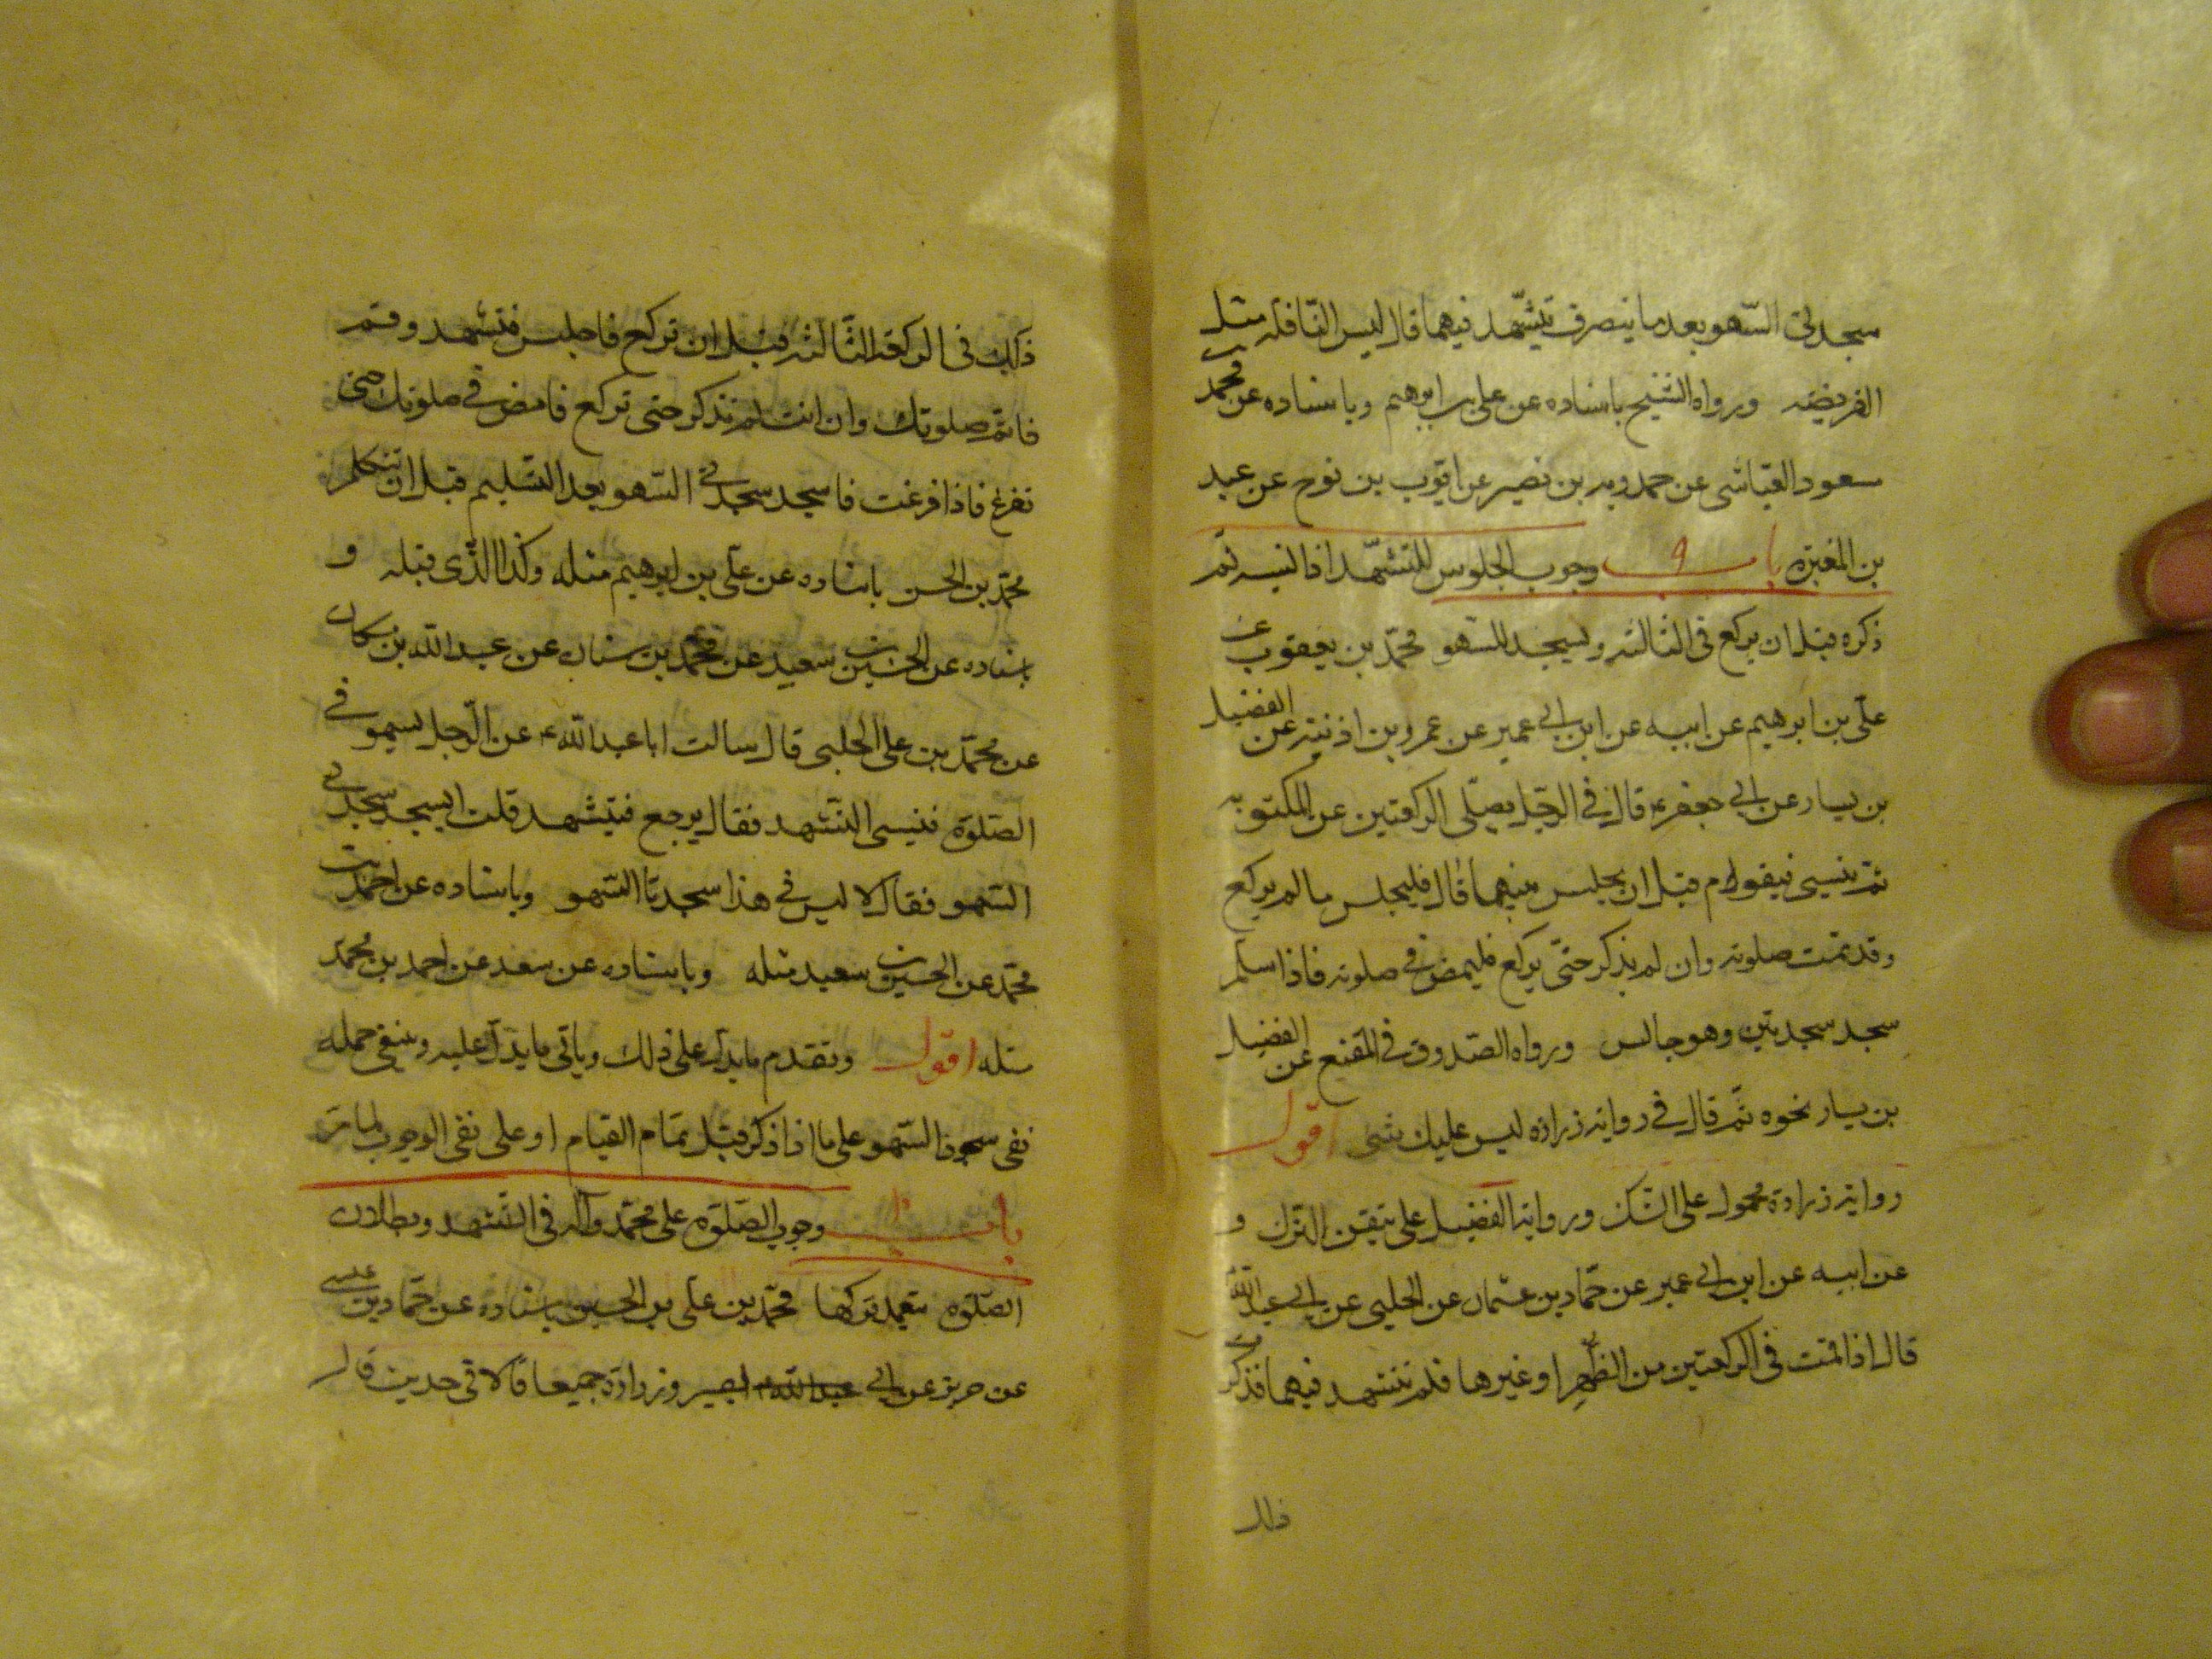 سجدتى السّهو بعد ما ينصرف يتشّهد فيهما قال ليس النّافلة مثل
الفريضه ورواه الشيخ باسناده عن على بن ابرهيم وباسناده عن محمد بن
مسعود العيّاشى عن حمدويه بن نصير عن ايّوب بن نوح عن عبد
بن المغيره باب ٩ وجوب الجلوس للتشهّد اذا نسيه ثم
ذكره قبل ان يركع فى الثالثه ويسجد للسّهو محمّد بن يعقوب عن
علّى بن ابرهيم عن ابيه عن ابن ابى عمير عن عمر بن اذنيه عن الفضيل
بن يسار عن ابى جعفر ع قال فى الرجل يصلى الركعتين من المكتوبه
ثم ينسى فيقوم قبل ان يجلس بينهما قال فليجلس ما لم يركع
وقد تمت صلوته وان لم يذكر حتّى يركع فليمض فى صلوته فاذا سلم
سجد سجدتين وهو جالس ورواه الصّدوق فى المقنع عن الفضيل
بن يسار نحوه ثم قال فى رواية زراره ليس عليك شئ اقول
رواية زرارة محمول على الشك ورواية الفضيل على تيقن الترك و
عن ابيه عن ابن ابى عمير عن حمّاد بن عثمان عن الحلبى عن ابى عبد الله
قال اذا قمت فى الركعتين من الظهر او غيرها فلم تتشهد فيهما فذكرت
ذلك
ذلك فى الركعة الثّالثه قبل ان تركع فاجلس فتشهد وقم
فاتم صلوتك وان انت لم تذكر حتى تركع فامض فى صلوتك حتى
تفرغ فاذا فرغت فاسجد سجدتى السّهو بعد التسليم قبل ان تتكلم
محمّد بن الحسن باسناده عن علّى بن ابرهيم مثله وكذا الّذى قبله و
باسناده عن الحسين بن سعيد عن محمّد بن سنان عن عبد الله بن مسكان
عن محمّد بن على الحلبى قال سالت ابا عبد الله ع عن الرّجل يسهو فى
الصّلوة فينسى التّشهد فقال يرجع فيتشهد قلت ايسجد سجدتى
السّهو فقال لا ليس فى هذا سجدتا السّهو وباسناده عن احمد بن
محّمد عن الحسين بن سعيد مثله وباسناده عن سعد عن احمد بن محمّد
مثله اقول وتقدم ما يدّل على ذلك وياتى ما يدّل عليه وينبغى حمله
نفى سجود السّهو على ما اذا ذكر قبل تمام القيام او على نفى الوجوب لما مر
باب ١٠ وجوب الصّلوة على محّمد وآله فى التّشهد وبطلان
الصّلوة بتعمد تركها محّمد بن علّى بن الحسين باسناده عن حمّاد بن عيسى
عن حريز عن ابى عبد الله ع بصير وزرارة جميعا قالا فى حديث قال